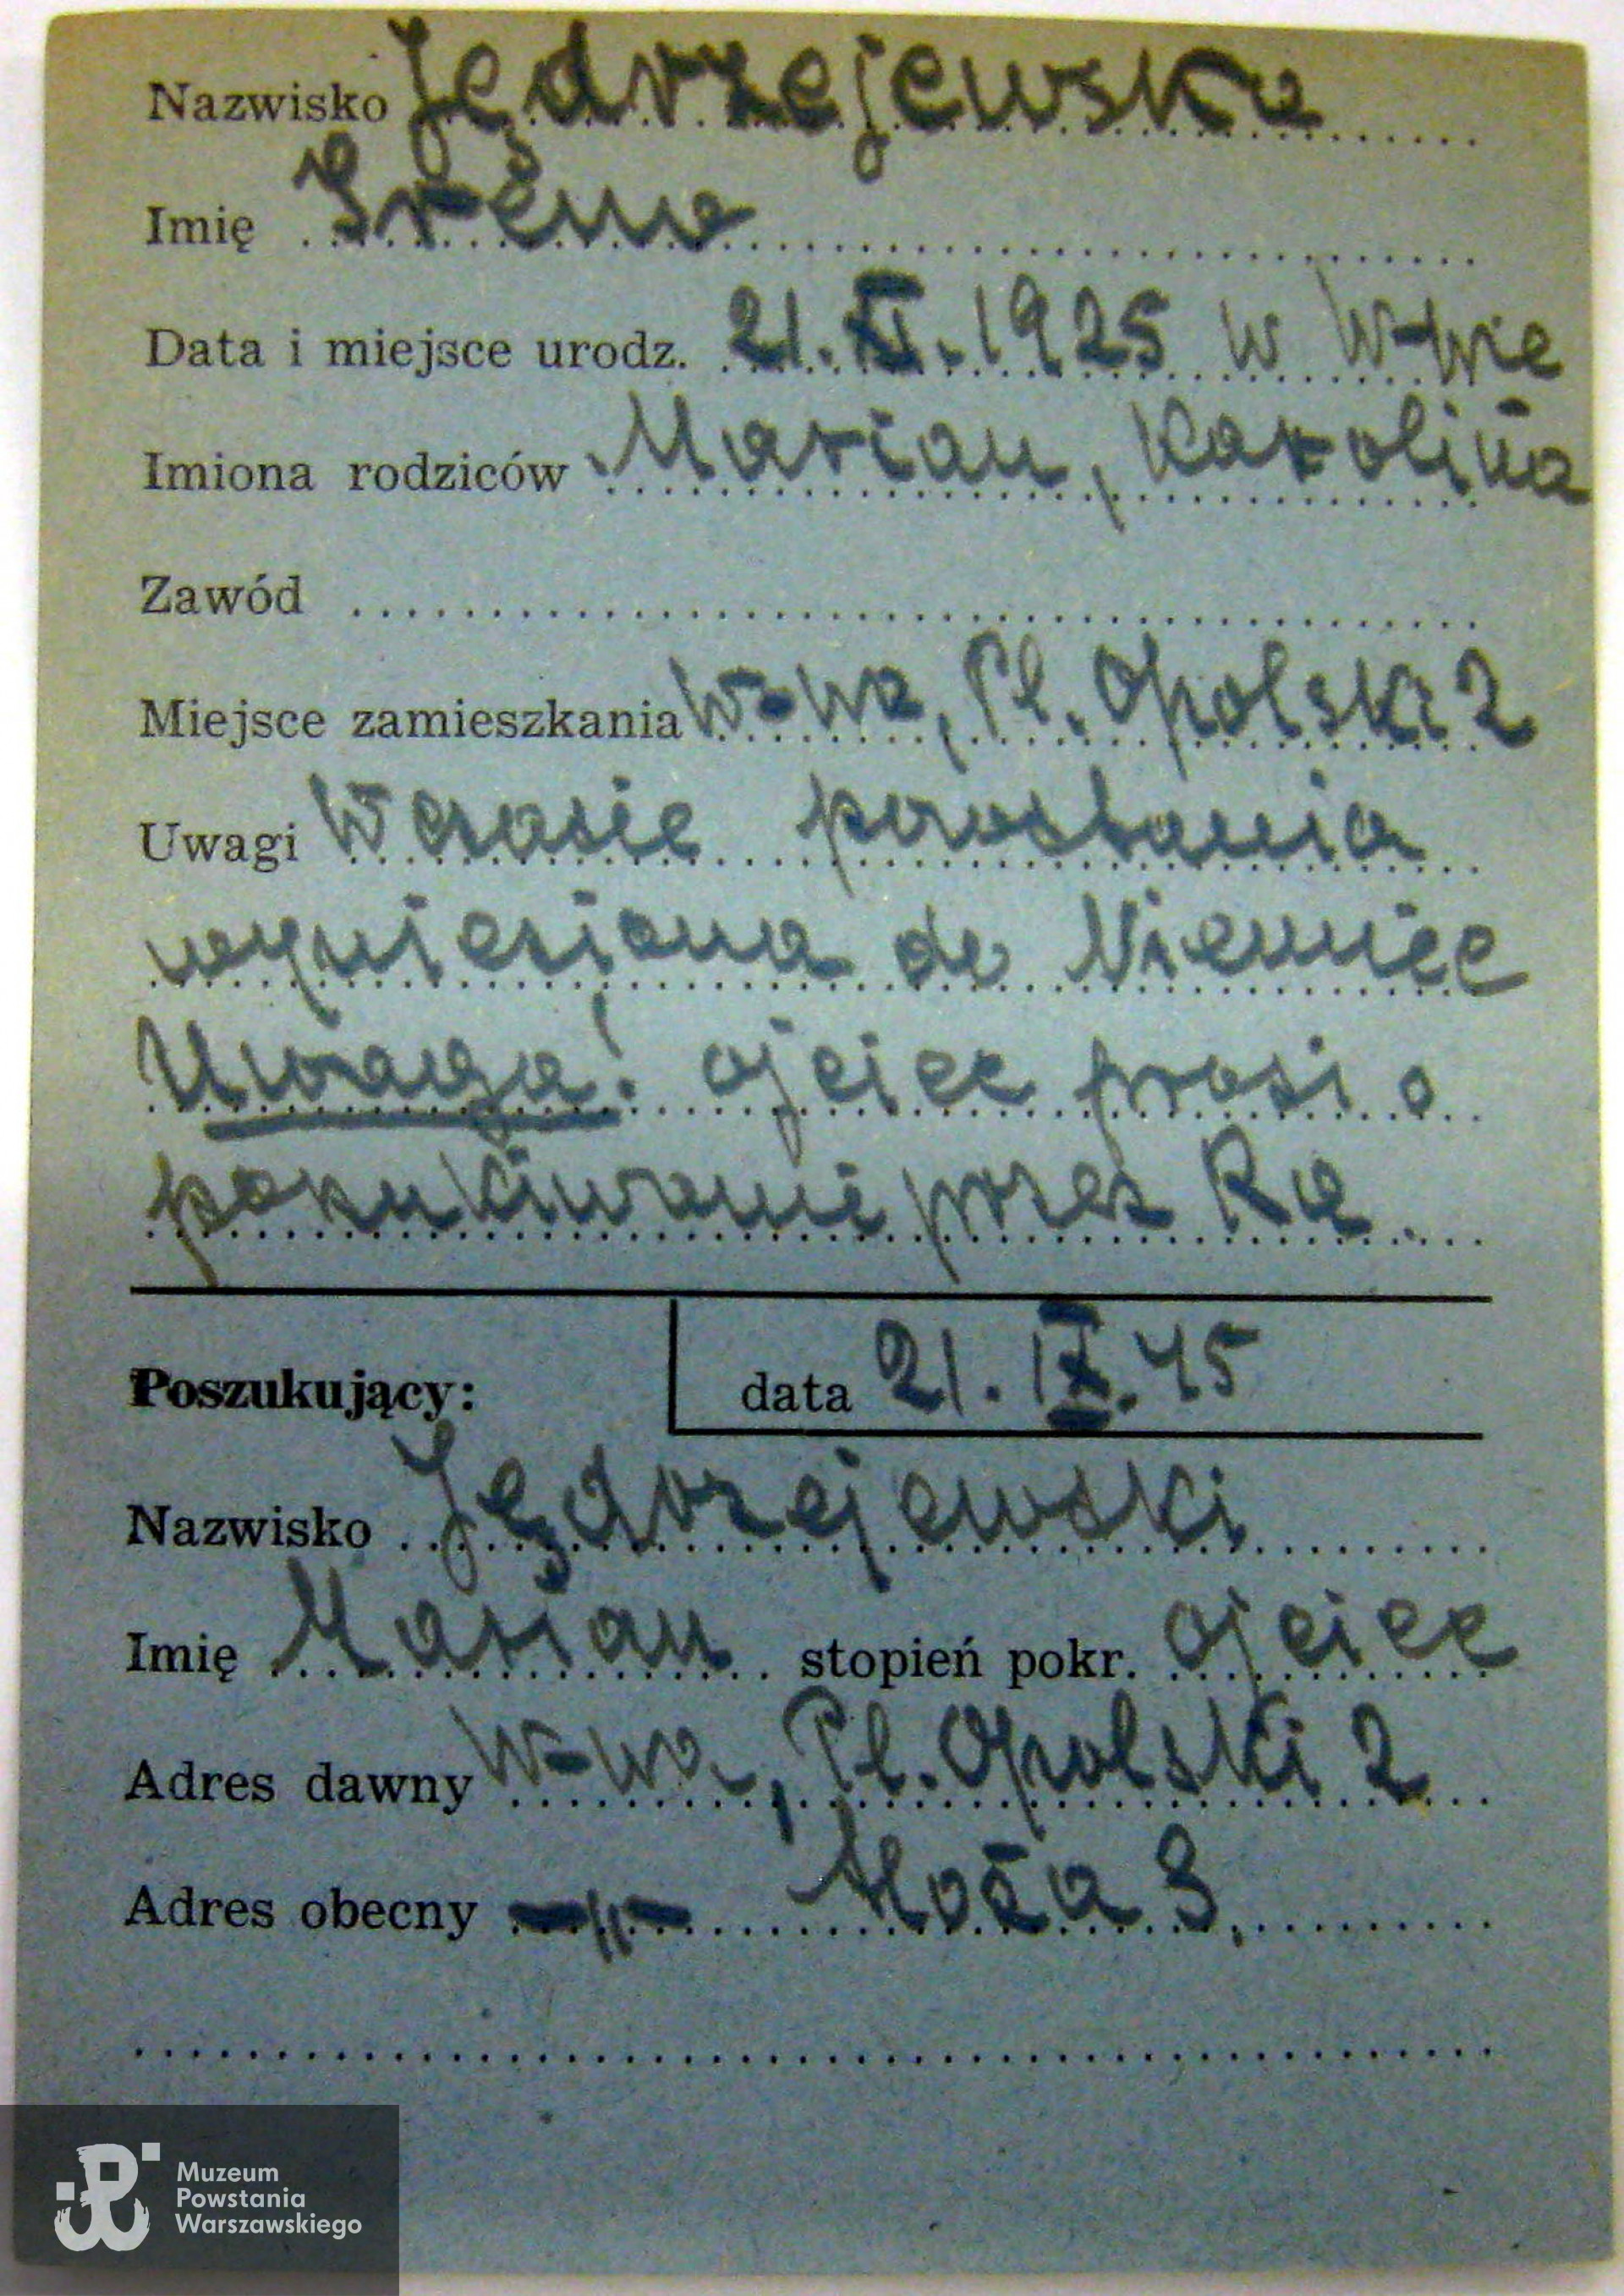 Nazwisko Jędrzejewska
Imię Irena
Data i miejsce urodz. 21.XI.1925 w W-wie
Imiona rodziców Marian, Karolina
Zawód
Miejsce zamieszkania W-wa, Pl. Opolski 2
Uwagi W czasie powstania
wywieziona do Niemiec
Uwaga! ojciec prosi o
poszukiwanie przez
Poszukujący: data 21.IX.45
Nazwisko Jędrzejewski
Imię Marian stopień pokr. ojciec
Adres dawny W-wa, Pl. Opolski 2
Adres obecny -„- Hoża
Muzeum
Powstania
Warszawskiego